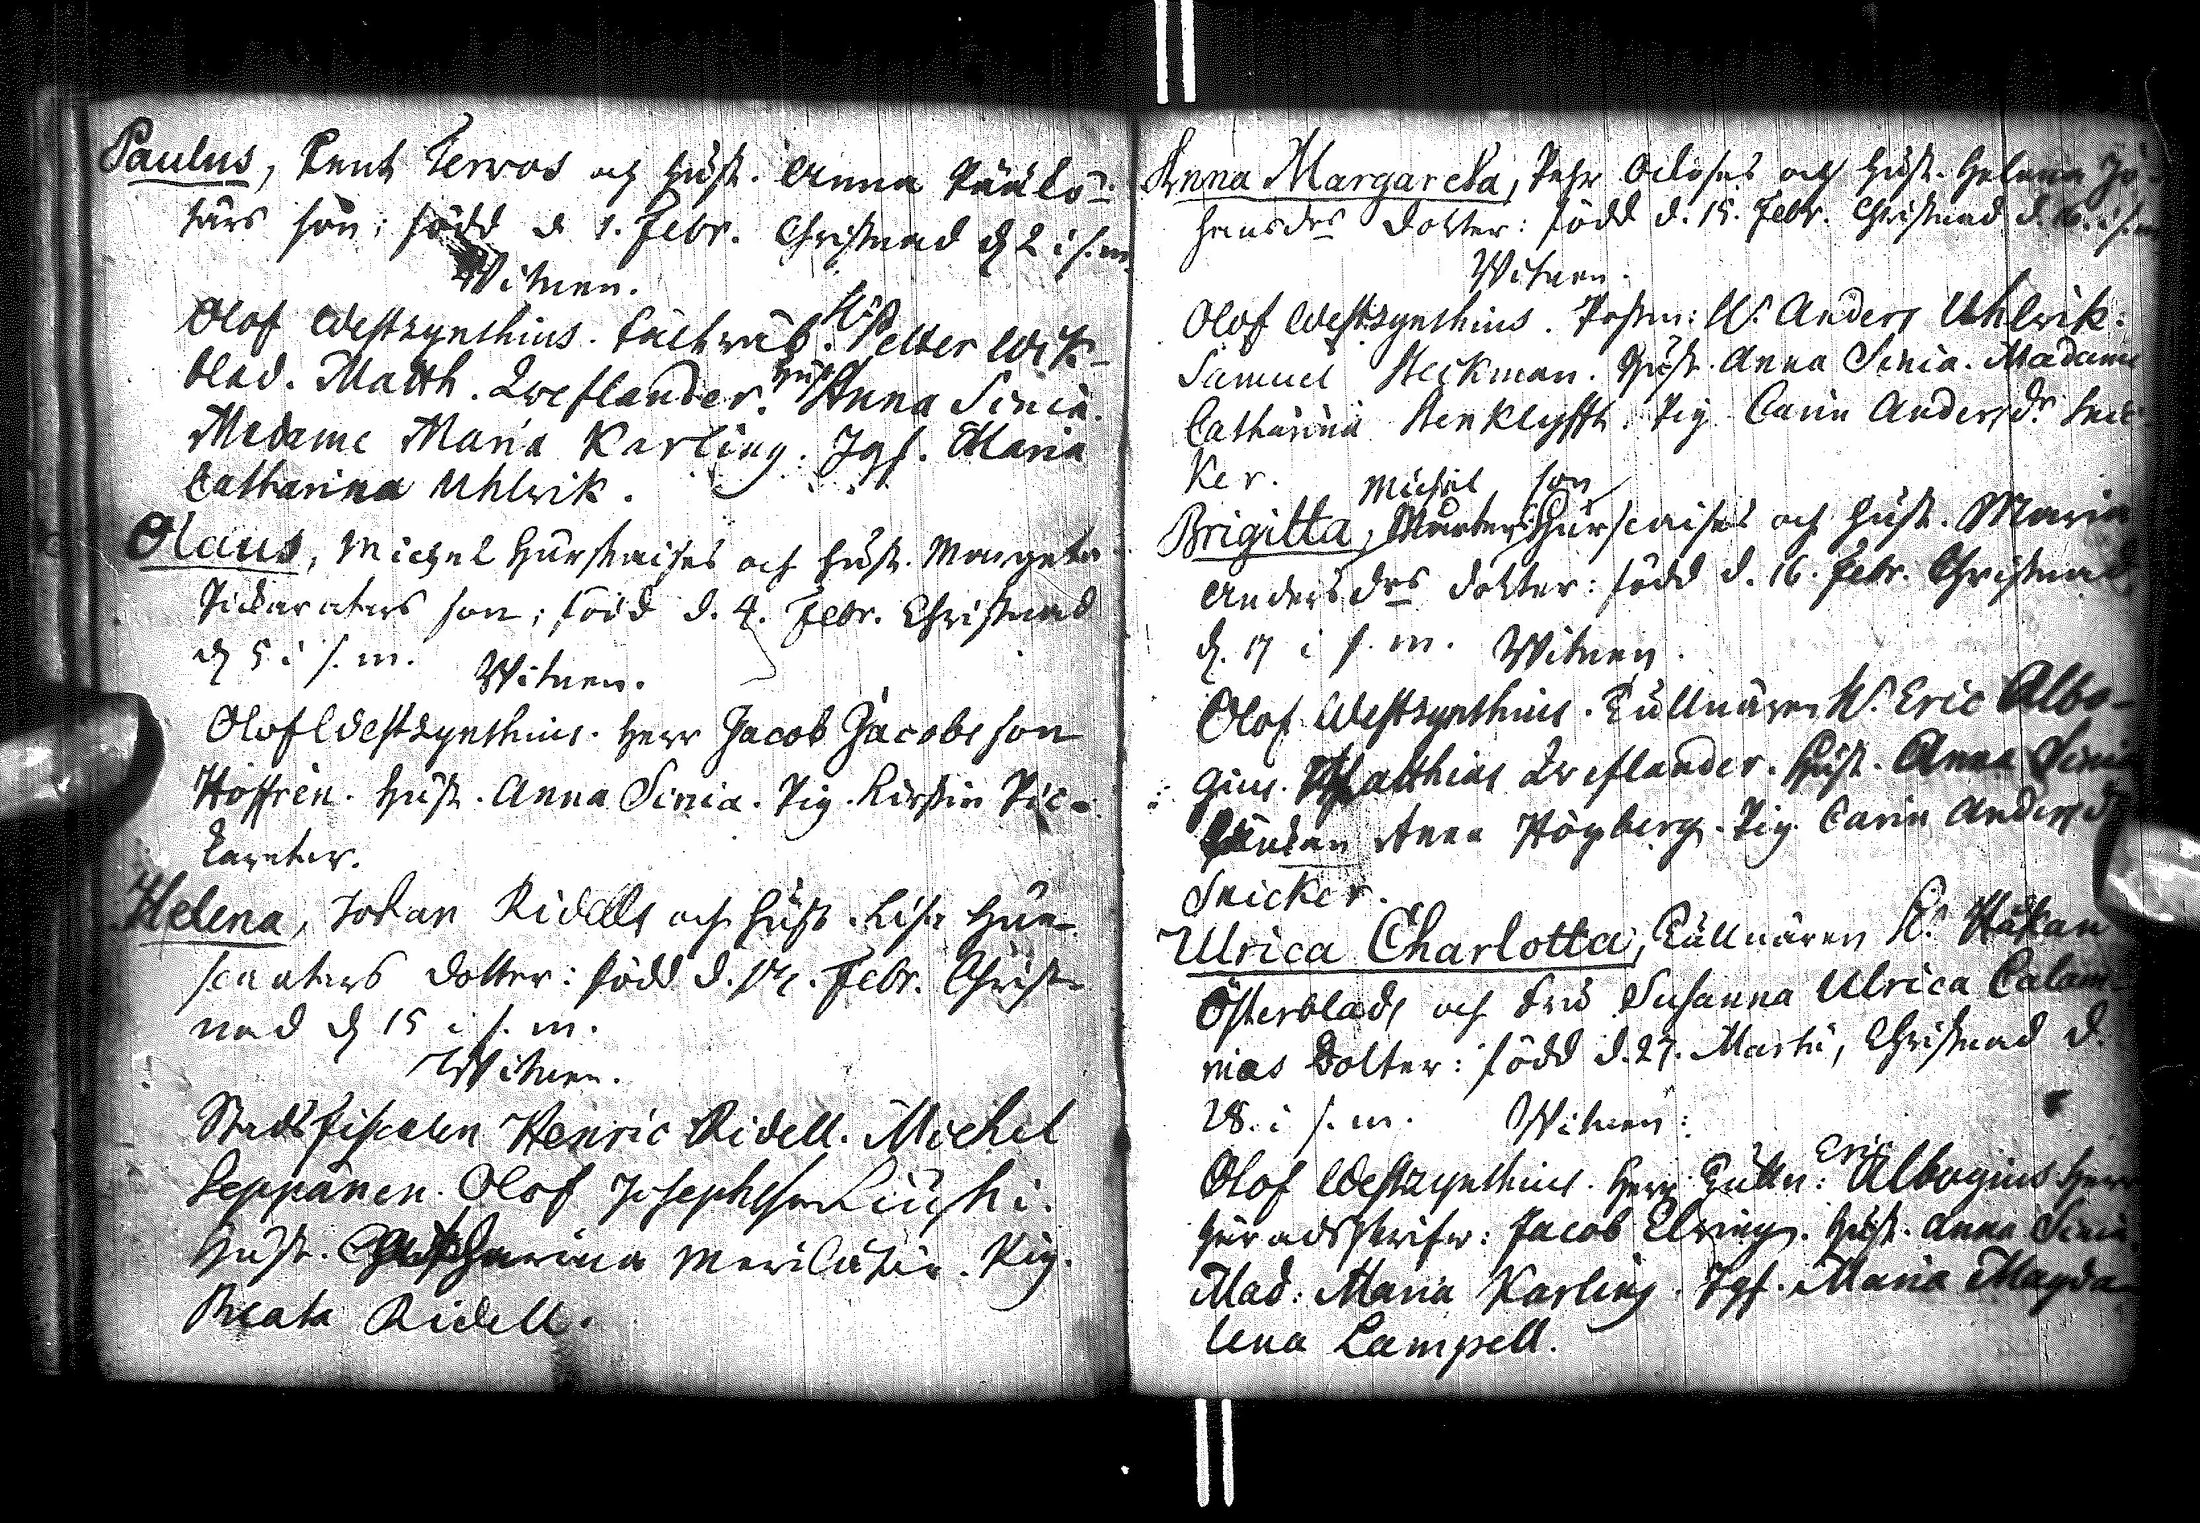 Paulus, Pent Tervos och hust. Anna Päälö-
tärs son; född d 1. Febr. Christnad d 2 i s. m.
Witnen.
Olof Westzynthius. Petter Wik-
blad. Matth. Zweflander. Hust. Anna Sinia.
Madame Maria Karling. Jgf. Maria
Catharina Uhlwik.
Olaus, Michel Hurskaises och hust. Margeta
son; född d. 4. Febr. Christnad
d 5 i s. m. Witnen.
Olof Westzynthius. Herr Jacob Jacobsson
Hoffrén. Hust. Anna Sinia. Pig. Kirstin Pic-
karater.
Helena, Johan Ridells och hust. Lisa Hur-
skaaters dotter: född d. 14. Febr. Christ-
nad d 15 i s. m.
Witnen.
Stadsfiscalen Henric Ridell. Michel
Seppänen. Olof Josephsson
Hust. Catharina Pig.
Beata Ridell.
Anna Margareta, Pehr och hust. Helena Jo-
hansdrs dotter: född d. 15. Febr. Christnad d. 16. i s. m.
Witnen.
Olof Westzynthius. Postm: Hr Anders Uhlwik.
Samuel Steckman. Hust. Anna Sinia. Madame
Catharina Stenklyfft. Pig. Carin Andersdr Snic-
ker.
Michel son
Brigitta, Hurscaises och hust. Maria
Andersdrs dotter: född d. 16. Febr. Christnad
d. 17 i s. m. Witnen.
Olof Westzynthius. Tullnären Hr Eric Albo-
gius. Matthias Zweflander. Hust. Anna Sinia
Anna Högberg. Pig. Carin Andersdr
Snicker.
Ulrica Charlotta, Tullnären Hr Håkan
Österblads och Fru Susanna Ulrica Calam-
nias Dotter: född d. 27. Martii, Christnad d.
28. i s. m. Witnen:
Olof Westzynthius. Herr Tulln: Eric Albogius Herr
Häradsskrifv: Jacob Elving. Hust. Anna Sinia.
Mad: Maria Karling. Jgf. Maria Magda-
lena Lampell.